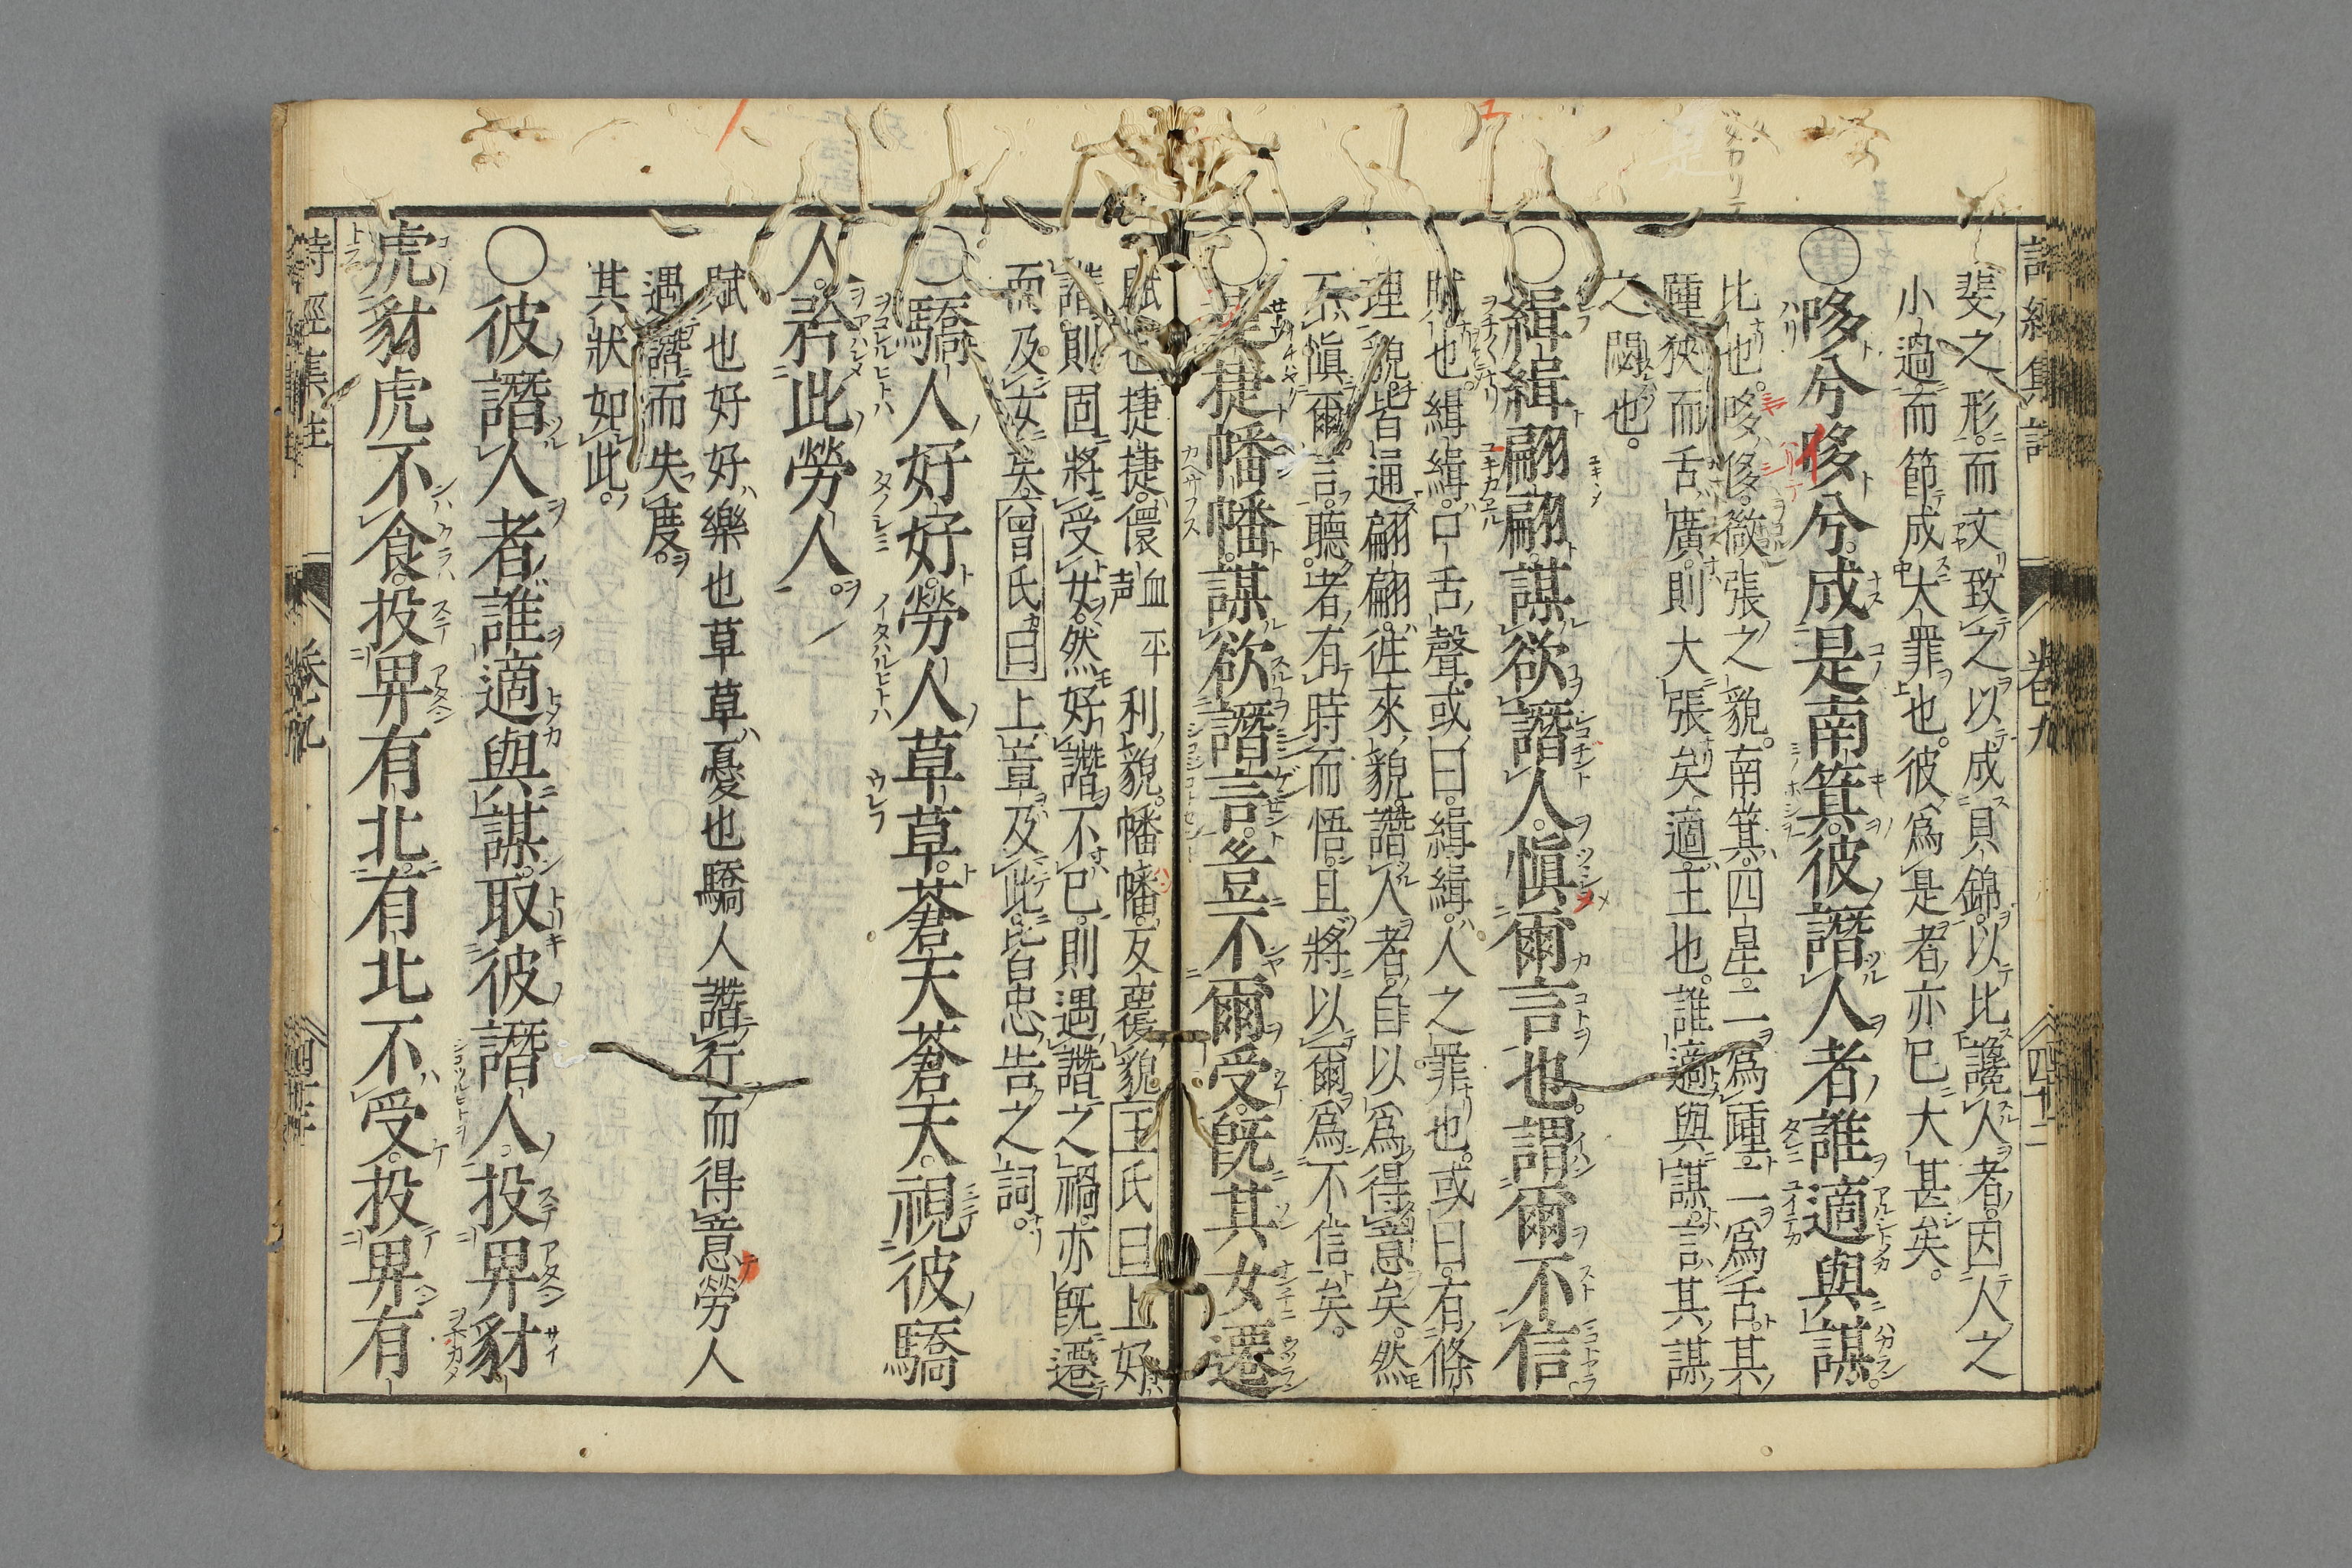 斐之形而文致之以成貝錦以比讒人者因人之
小過而節成大罪也彼爲是者亦已大甚矣
○哆兮哆兮成是南箕彼譖人者誰適與謀
比也哆侈微張之貌南箕四星二爲踵二爲舌其
踵狹而舌廣則大張矣適主也誰適與謀言其謀
之閟也
○緝緝翩翩謀欲譖人愼爾言也謂爾不信
賦也緝緝口舌聲或曰緝緝人之罪也或曰有條
理貌皆通翩翩徃來貌譖人者自以爲得意矣然
不愼爾言聽者有時而悟且將以爾爲不信矣
○捷捷幡幡謀欲譖言豈不爾受旣其女遷
賦也捷捷儇利貌幡幡反覆貌王氏曰上好
譖則固將受女然好譖不已則遇譖之禍亦旣遷
而及女矣曾氏曰上章及此皆忠告之詞
○驕人好好勞人草草蒼天蒼天視彼驕
人矜此勞人
賦也好好樂也草草憂也驕人譖行而得意勞人
遇譖而失度
其狀如此
○彼譖人者誰適與謀取彼譖人投畀豺
虎豺虎不食投畀有北有北不受投畀有
詩經集註 卷九 四十二